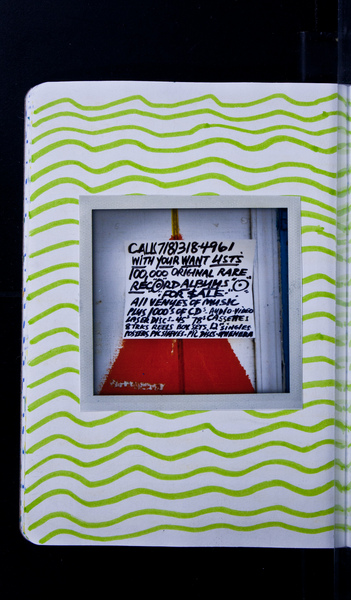 CALL(718)318-4961
WITH YOUR WANT LISTS
100,000 ORIGINAL RARE
RECORD ALBUMS
FOR $ALE
ALL VENUES OF MUSIC
PLUS 1000'S OF CD'S AUDIO-VIDEO
LASER DISC'S-45'S 78'S CASSETTES
8 TRKS REELS BOX SETS, 12" SINGLES
POSTERS PIC SLEEVES-PIC DISCS-